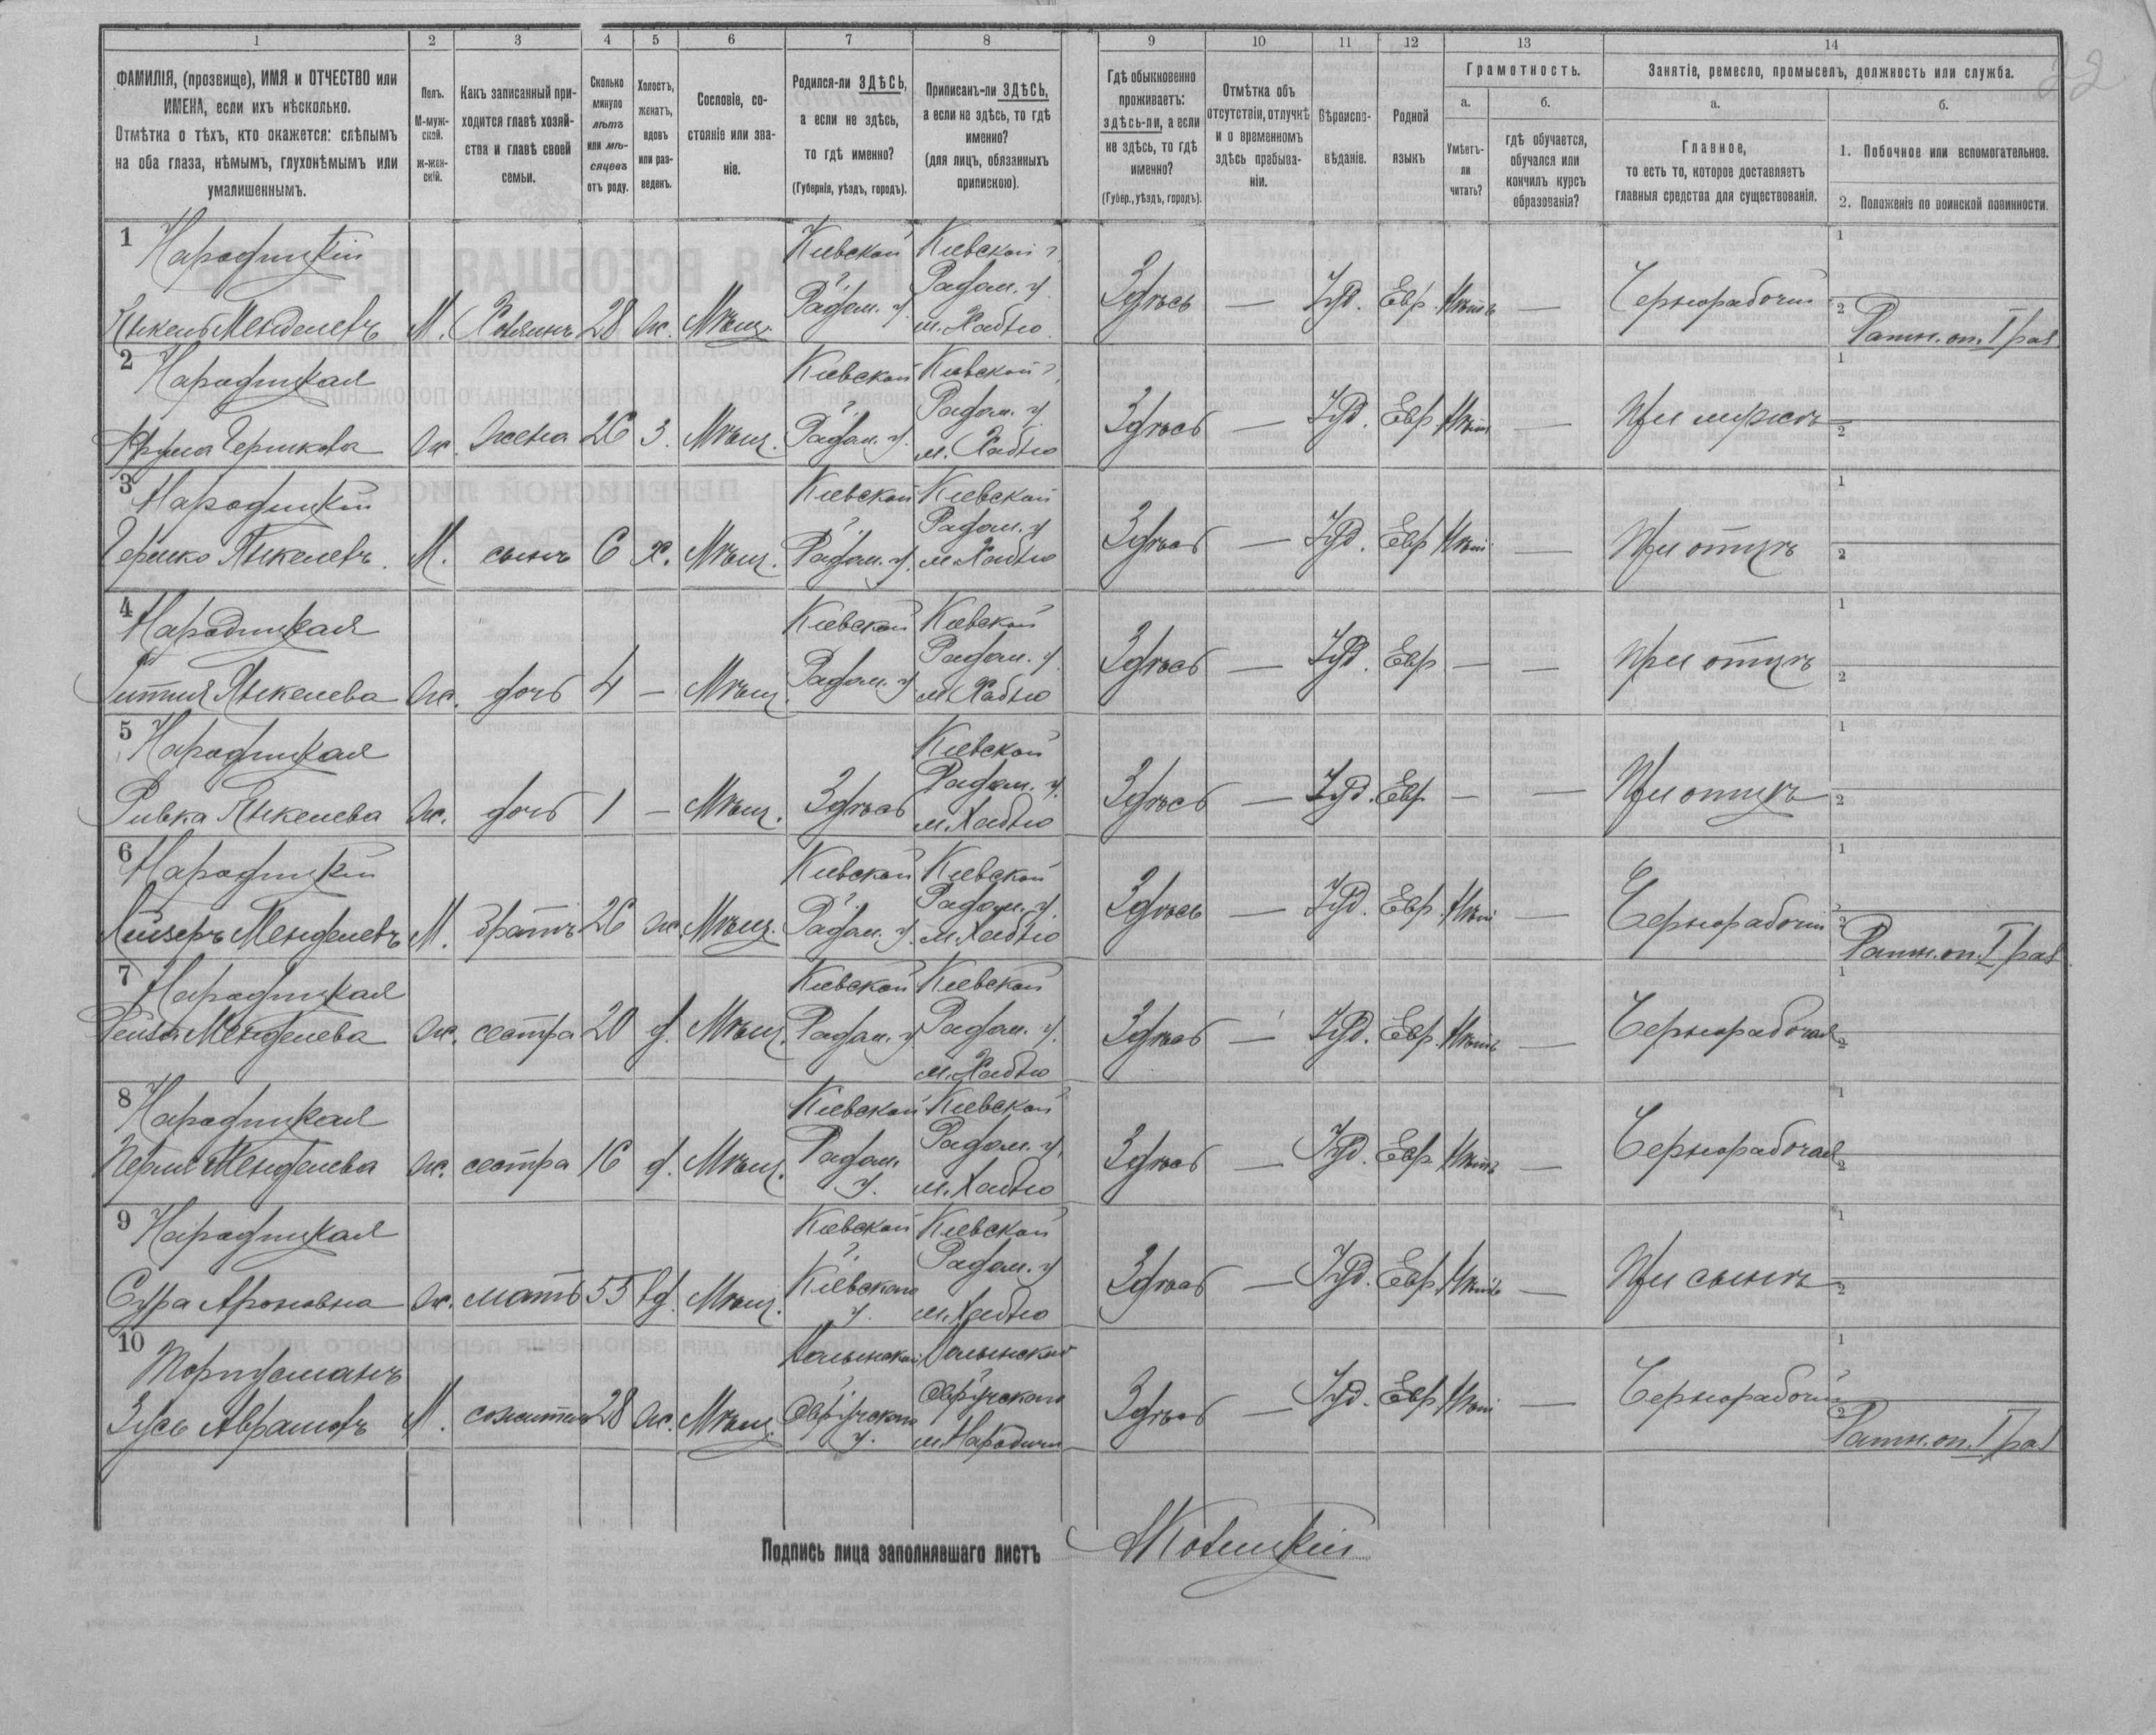 1 2 3 4 5 6 7 8 9 10 11 12 13 14
ФАМИЛІЯ, (прозвище), ИМЯ и ОТЧЕСТВО или
ИМЕНА, если ихъ нѣсколько.
Отмѣтка о тѣхъ, кто окажется: слѣпымъ
на оба глаза, нѣмымъ, глухонѣмымъ или
умалишеннымъ.
Полъ.
М-муж-
ской.
ж-жен-
скій.
Какъ записанный при-
ходится главѣ хозяй-
ства и главѣ своей
семьи.
Сколько
минуло
лѣтъ
или мѣ-
сяцевъ
отъ роду.
Холостъ,
женатъ,
вдовъ
или раз-
веденъ.
Сословіе, со-
стояніе или зва-
ніе.
Родился-ли ЗДѢСЬ,
а если не здѣсь,
то гдѣ именно?
(Губернія, уѣздъ, городъ).
Приписанъ-ли ЗДѢСЬ,
а если не здѣсь, то гдѣ
именно?
(для лицъ, обязанныхъ
припискою).
Гдѣ обыкновенно
проживаетъ:
здѣсь-ли, а если
не здѣсь, то гдѣ
именно?
(Губер., уѣздъ, городъ).
Отмѣтка объ
отсутствіи, отлучкѣ
и о временномъ
здѣсь пребыва-
ніи.
Вѣроиспо-
вѣданіе.
Родной
языкъ
Грамотность.
а.
Умѣетъ-
ли
читать?
б.
гдѣ обучается,
обучался или
кончилъ курсъ
образованія?
Занятіе, ремесло, промыселъ, должность или служба.
а.
Главное,
то есть то, которое доставляетъ
главныя средства для существованія.
б.
1. Побочное или вспомогательное.
2. Положеніе по воинской повинности.
1 Народицкій
Янкель Менделевъ М. Хозяинъ 28 ж. Мѣщ.
Кіевской г. Радом. у.
Кіевской г. Радом. у. м. Хабно
Здѣсь — Іуд. Евр. Нѣтъ — Чернорабочій
1
2 Ратн. оп. I раз
2 Народицкая
Фрума Гершкова ж. жена 26 з. Мѣщ.
Кіевской г. Радом. у.
Кіевской г. Радом. у. м. Хабно
Здѣсь — Іуд. Евр. Нѣтъ — При мужѣ
1
2
3 Народицкій
Гершко Янкелевъ. М. сынъ 6 х. Мѣщ.
Кіевской г. Радом. у.
Кіевской Радом. у. м. Хабно
Здѣсь — Іуд. Евр. Нѣтъ — При отцѣ
1
2
4 Народицкая
Гитля Янкелева ж. дочь 4 — Мѣщ.
Кіевской Радом. у
Кіевской Радом. у. м. Хабно
Здѣсь — Іуд. Евр. — — При отцѣ
1
2
5 Народицкая
Ривка Янкелева ж. дочь 1 — Мѣщ.
Здѣсь
Кіевской Радом. у. м. Хабно
Здѣсь — Іуд. Евр — — При отцѣ
1
2
6 Народицкій
Лейзеръ Менделевъ М. братъ 26 ж. Мѣщ.
Кіевской г. Радом. у.
Кіевской Радом. у. м. Хабно
Здѣсь — Іуд. Евр. Нѣтъ — Чернорабочій
2 Ратн. оп. I раз
7 Народицкая
Менделева ж. сестра 20 д. Мѣщ.
Кіевской Радом. у
Кіевской Радом. у. м. Хабно
Здѣсь — Іуд. Евр. Нѣтъ — Чернорабочая
1
2
8 Народицкая
Перля Менделева ж. сестра 16 д. Мѣщ.
Кіевской Радом. у.
Кіевской Радом. у. м. Хабно
Здѣсь — Іуд. Евр. Нѣтъ — Чернорабочая
1
2
9 Народицкая
Сура Ароновна ж. мать 55 вд. Мѣщ.
Кіевской г. Кіевскаго у.
Кіевской Радом. у м. Хабно
Здѣсь — Іуд. Евр. Нѣтъ — При сынѣ
1
2
10
Зусь Аврамовъ М. 28 ж. Мѣщ.
Волынской г. Овручскаго у.
Волынской Овручскаго м. Народичи
Здѣсь — Іуд. Евр. Нѣтъ — Чернорабочій
1
2 Ратн. оп. I раз
Подпись лица заполнявшаго листъ